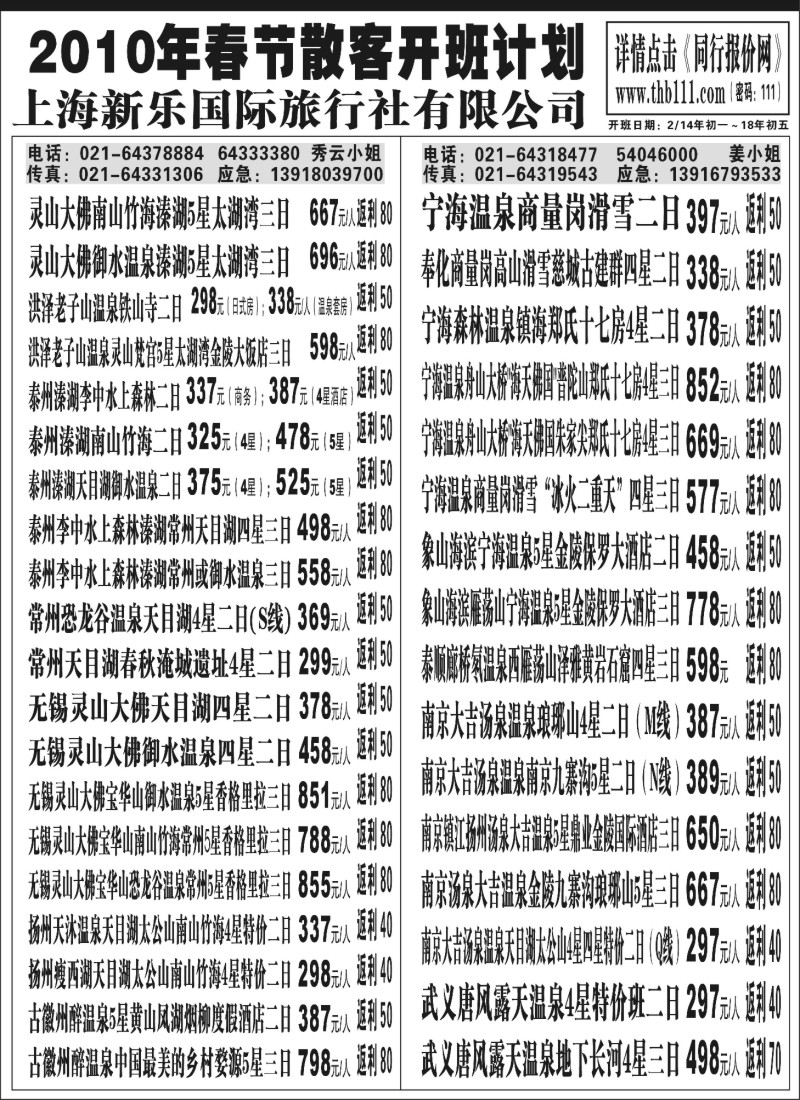 2010年春节散客开班计划
上海新乐国际旅行社有限公司
详情点击《同行报价网》
www.thb111.com（密码：111）
开班日期：2/14年初一～18年初五
电话：021-64378884 64333380 秀云小姐
传真：021-64331306 应急：13918039700
灵山大佛南山竹海溱湖5星太湖湾三日 667元/人 返利80
灵山大佛御水温泉溱湖5星太湖湾三日 696元/人 返利80
洪泽老子山温泉铁山寺二日 298元（日式房）；338元/人（温泉套房） 返利50
洪泽老子山温泉灵山梵宫5星太湖湾金陵大饭店三日 598元/人 返利80
泰州溱湖李中水上森林二日 337元（商务）；387元（4星酒店） 返利50
泰州溱湖南山竹海二日 325元（4星）；478元（5星） 返利50
泰州溱湖天目湖御水温泉二日 375元（4星）；525元（5星） 返利50
泰州李中水上森林溱湖常州天目湖四星三日 498元/人 返利80
泰州李中水上森林溱湖常州或御水温泉三日 558元/人 返利80
常州恐龙谷温泉天目湖4星二日(S线) 369元/人 返利50
常州天目湖春秋淹城遗址4星二日 299元/人 返利50
无锡灵山大佛天目湖四星二日 378元/人 返利50
无锡灵山大佛御水温泉四星二日 458元/人 返利50
无锡灵山大佛宝华山御水温泉5星香格里拉三日 851元/人 返利80
无锡灵山大佛宝华山南山竹海常州5星香格里拉三日 788元/人 返利80
无锡灵山大佛宝华山恐龙谷温泉常州5星香格里拉三日 855元/人 返利80
扬州天沐温泉天目湖太公山南山竹海4星特价二日 337元/人 返利40
扬州瘦西湖天目湖太公山南山竹海4星特价二日 298元/人 返利40
古徽州醉温泉5星黄山凤湖烟柳度假酒店二日 387元/人 返利50
古徽州醉温泉中国最美的乡村婺源5星三日 798元/人 返利80
电话：021-64318477 54046000 姜小姐
传真：021-64319543 应急：13916793533
宁海温泉商量岗滑雪二日 397元/人 返利50
奉化商量岗高山滑雪慈城古建群四星二日 338元/人 返利50
宁海森林温泉镇海郑氏十七房4星二日 378元/人 返利50
宁海温泉舟山大桥"海天佛国"普陀山郑氏十七房4星三日 852元/人 返利80
宁海温泉舟山大桥"海天佛国朱家尖郑氏十七房4星三日 669元/人 返利80
宁海温泉商量岗滑雪“冰火二重天”四星三日 577元/人 返利80
象山海滨宁海温泉5星金陵保罗大酒店二日 458元/人 返利50
象山海滨雁荡山宁海温泉5星金陵保罗大酒店三日 778元/人 返利80
泰顺廊桥氡温泉西雁荡山泽雅黄岩石窟四星三日 598元 返利80
南京大吉汤泉温泉琅琊山4星二日（M线） 387元/人 返利50
南京大吉汤泉温泉南京九寨沟5星二日（N线） 389元/人 返利50
南京镇江扬州汤泉大吉温泉5星鼎业金陵国际酒店三日 650元/人 返利80
南京汤泉大吉温泉金陵九寨沟琅琊山5星三日 667元/人 返利80
南京大吉汤泉温泉天目湖太公山4星四星特价二日（Q线） 297元/人 返利40
武义唐风露天温泉4星特价班二日 297元/人 返利40
武义唐风露天温泉地下长河4星三日 498元/人 返利70